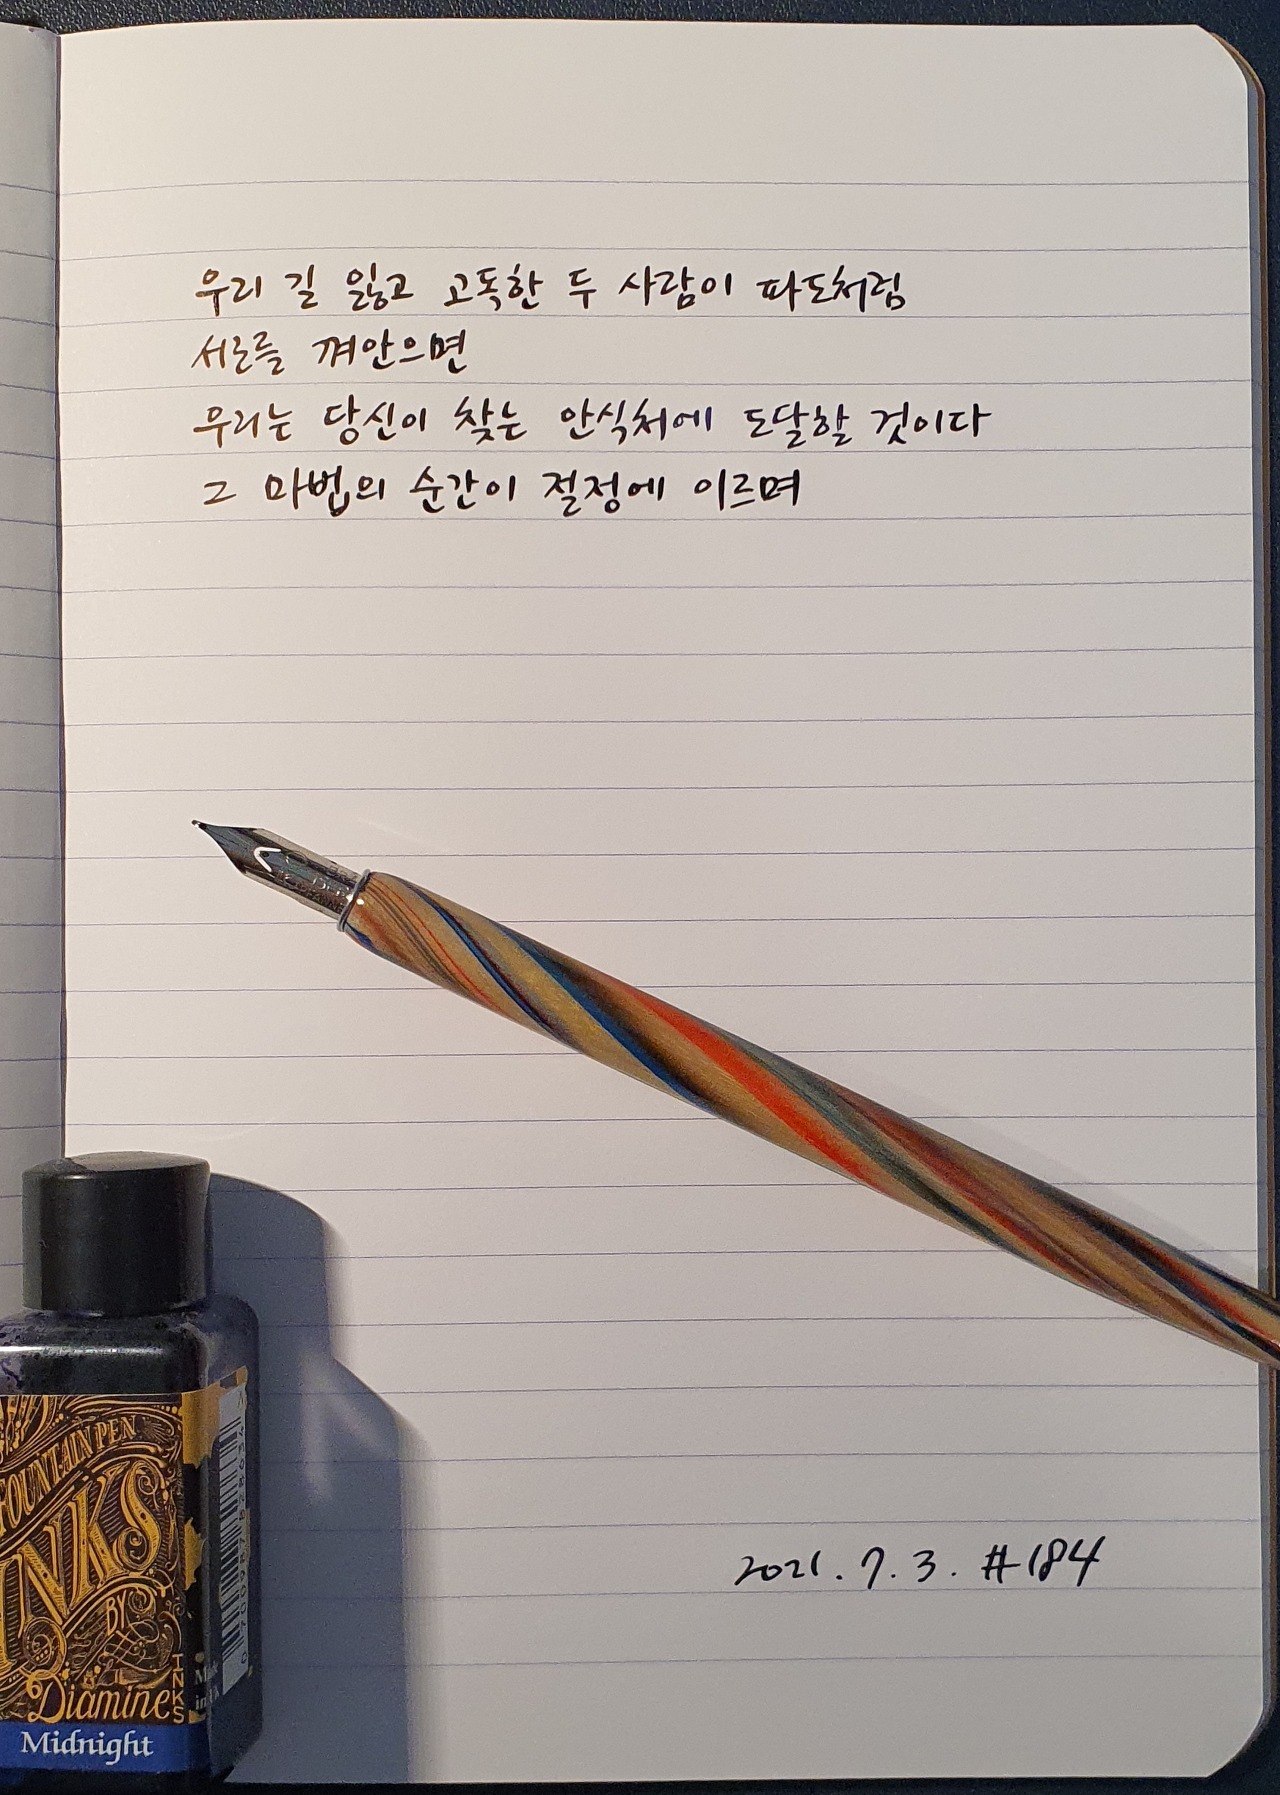 우리 길 잃고 고독한 두 사람이 파도처럼
서로를 껴안으면
우리는 당신이 찾는 안식처에 도달할 것이다
그 마법의 순간이 절정에 이르며
FOUNTAIN PEN
INKS
BY
Diamine
INKS
Midnight
2021. 7. 3. #184